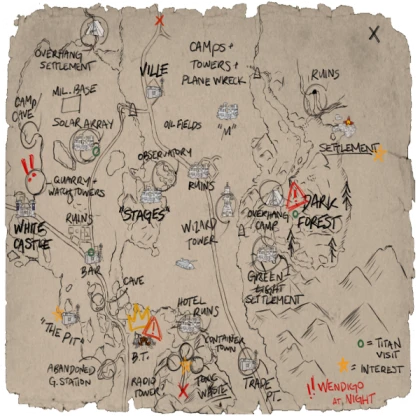 OVERHANG
SETTLEMENT
VILLE
CAMPS +
TOWERS +
PLANE WRECK
X
RUINS
MIL. BASE
CAMP
CAVE
SOLAR ARRAY
OIL FIELDS
"N"
SETTLEMENT
OBSERVATORY
!!
QUARRY +
WATCHTOWERS
RUINS
"STAGES"
WHITE
CASTLE
RUINS
WIZARD
TOWER
OVERHANG
CAMP
DARK
FOREST
BAR
CAVE
GREEN
LIGHT
SETTLEMENT
HOTEL
RUINS
"THE PIT"
B.T.
CONTAINER
TOWN
= TITAN
VISIT
= INTEREST
ABANDONED
G. STATION
RADIO
TOWER
TOXIC
WASTE
TRADE
PT.
!! WENDIGO
AT NIGHT